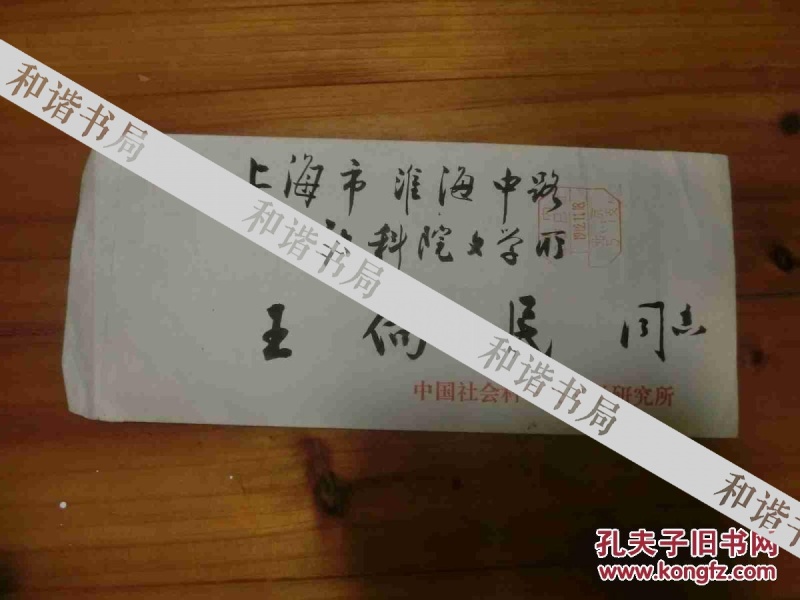 上海市淮海中路
科院文学所
王 民 同志
1992.11.18
中国社会科 研究所
和谐书局
和谐书局
和谐书局
和谐书局
孔夫子旧书网
www.kongfz.com